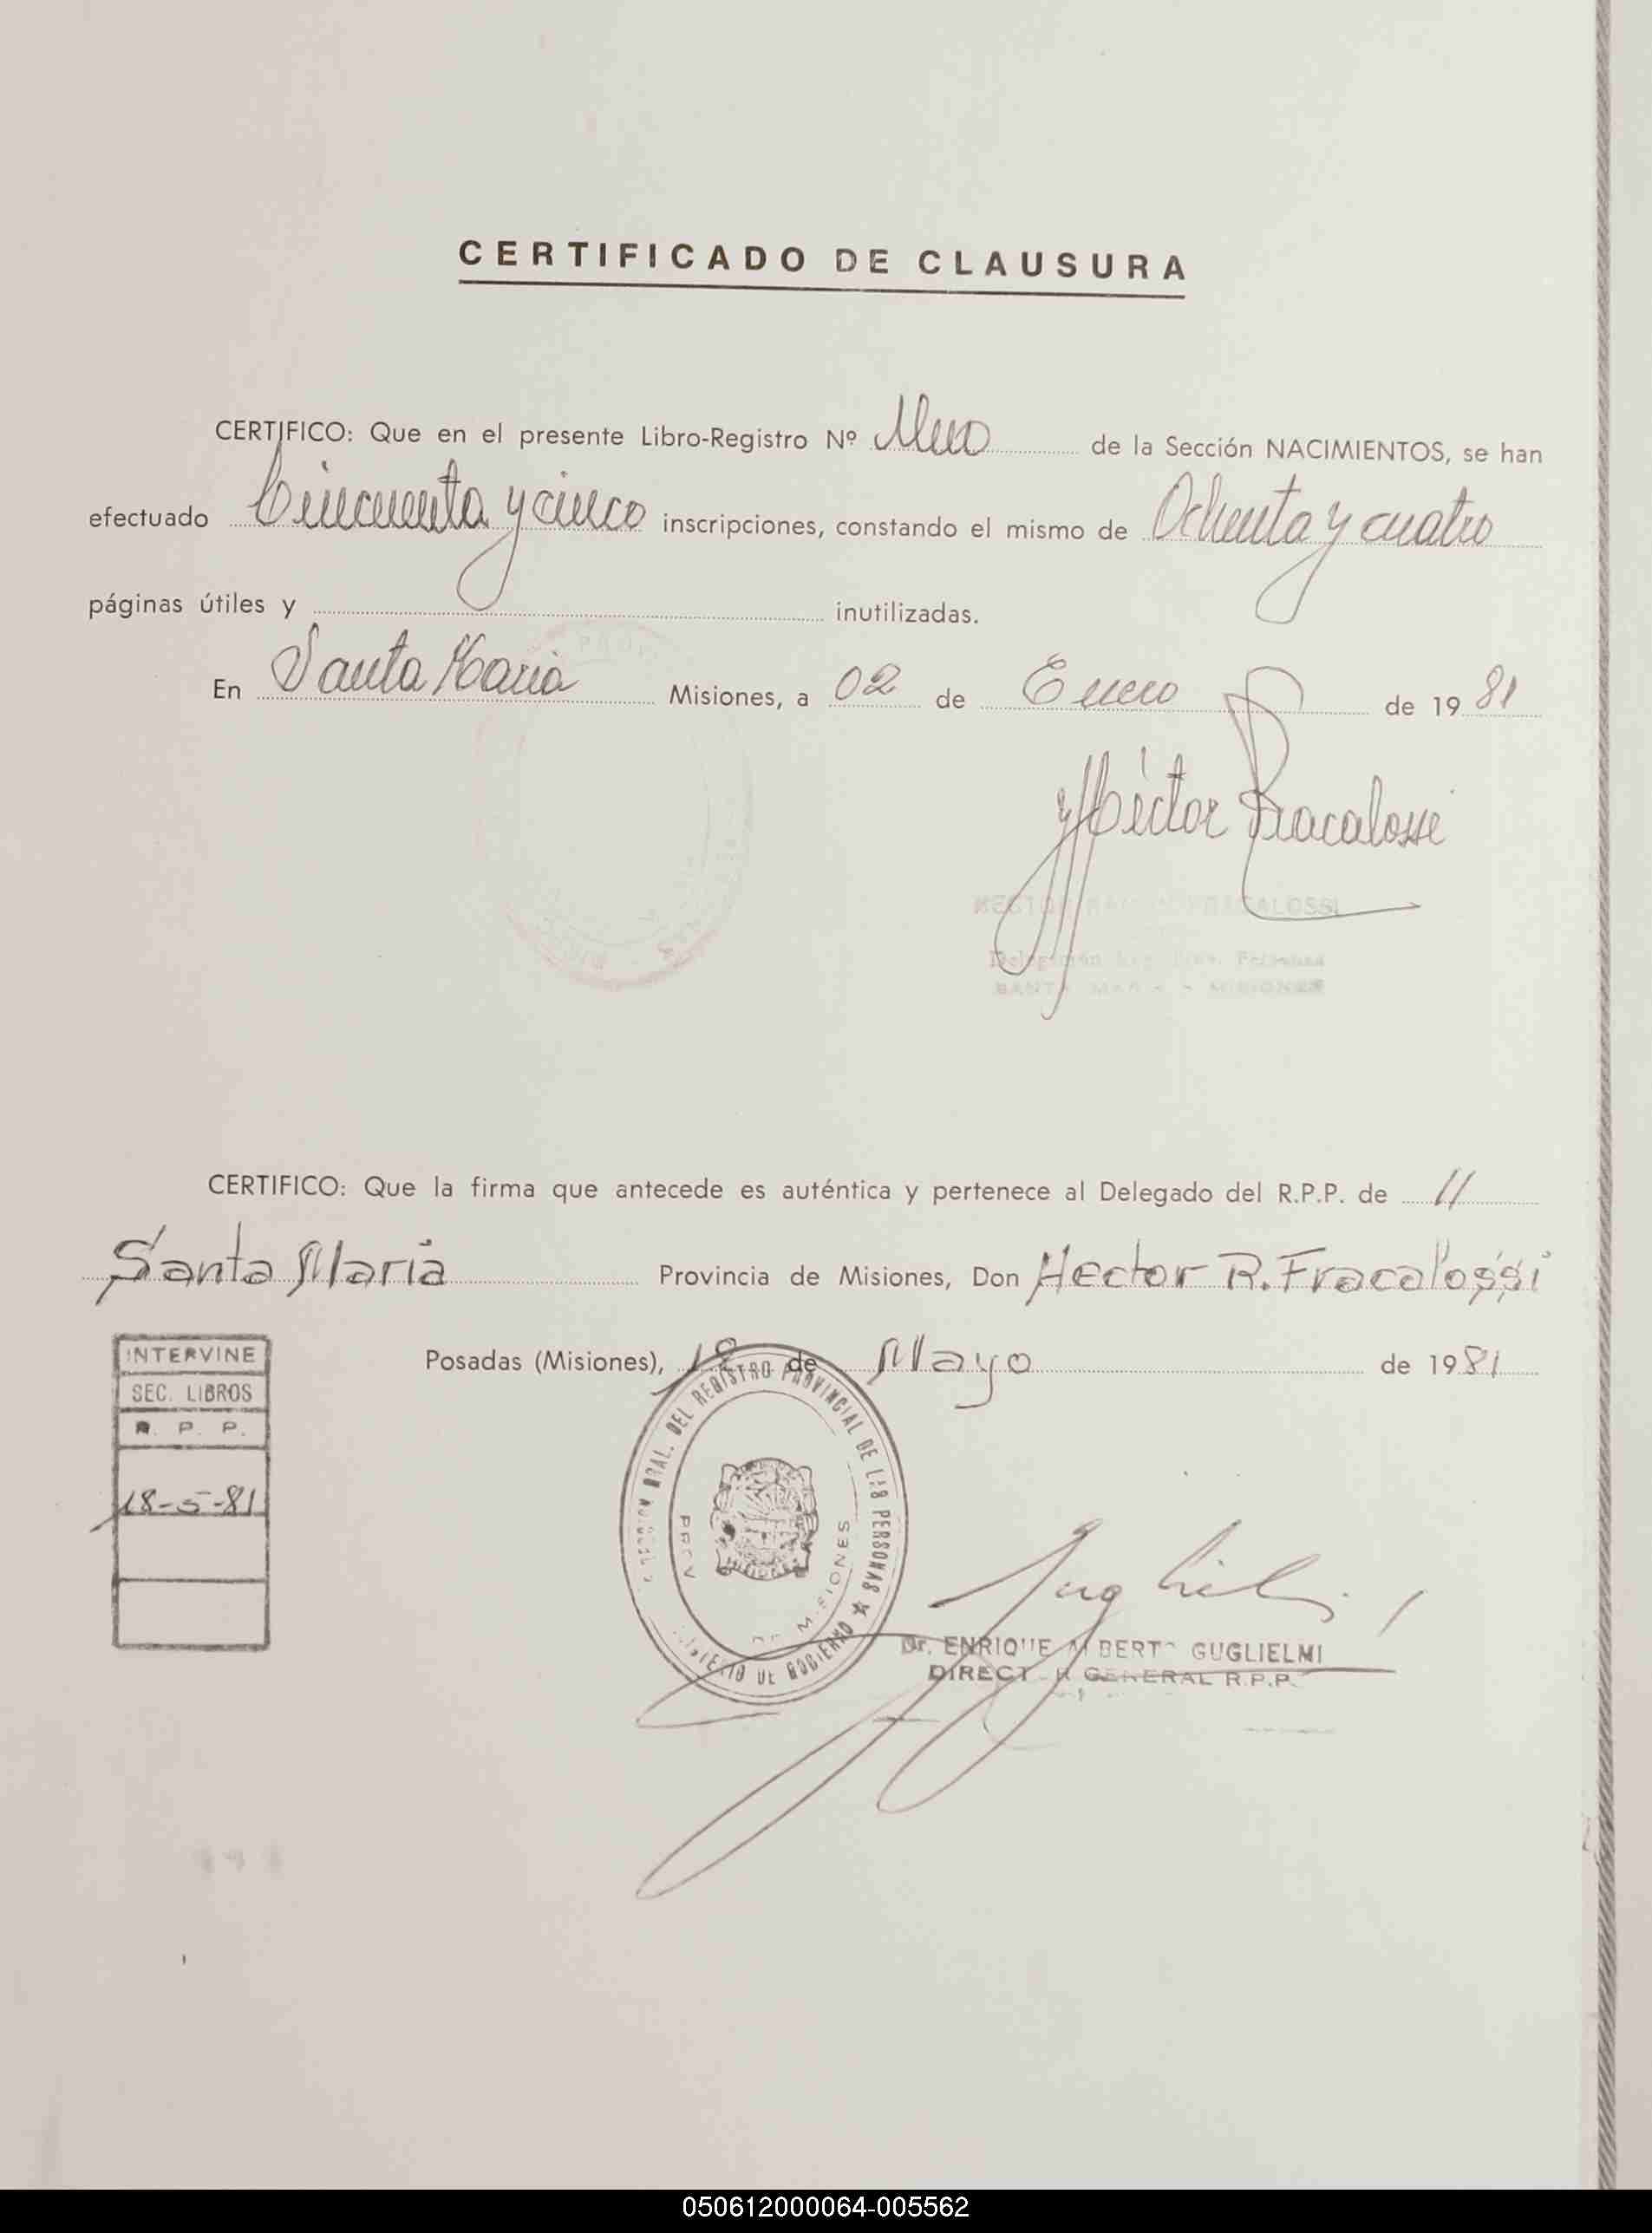 CERTIFICADO DE CLAUSURA
CERTIFICO: Que en el presente Libro-Registro Nº Uno de la Sección NACIMIENTOS, se han
efectuado Cincuenta y cinco inscripciones, constando el mismo de Ochenta y cuatro
páginas útiles y inutilizadas.
En Santa María Misiones, a 02 de Enero de 1981
Héctor Fracalossi
HECTOR FRACALOSSI
SANTA MARIA - MISIONES
CERTIFICO: Que la firma que antecede es auténtica y pertenece al Delegado del R.P.P. de //
Santa María Provincia de Misiones, Don Hector R. Fracalossi
Posadas (Misiones), 18 de Mayo de 1981
INTERVINE
SEC. LIBROS
R. P. P.
18-5-81
DEL REGISTRO PROVINCIAL DE LAS PERSONAS
PROV DE MISIONES
DE GOBIERNO
Dr. ENRIQUE ALBERTO GUGLIELMI
DIRECTOR GENERAL R.P.P.
050612000064-005562